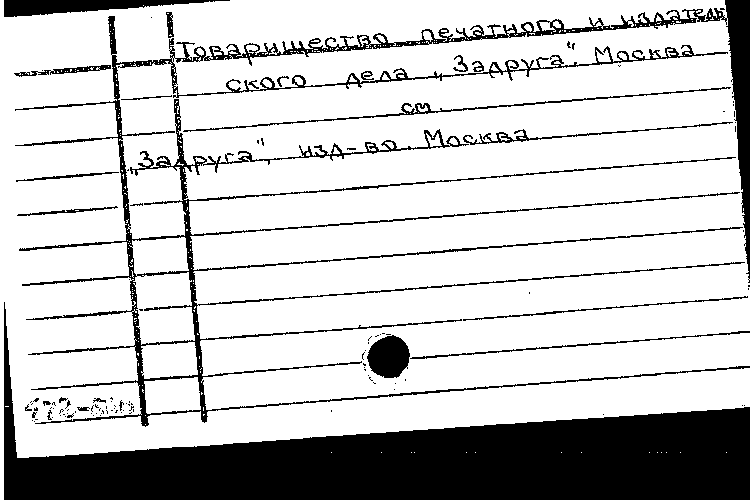 Товарищество печатного и издатель
ского дела „Задруга". Москва
см.
„Задруга", изд-во. Москва